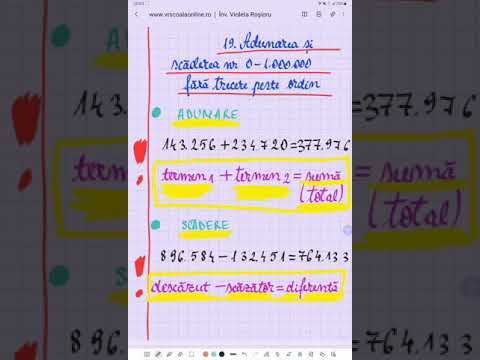 www.viscoalaonline.ro | Înv. Violeta Roșioru
19. Adunarea și
scăderea nr. 0-1.000.000
fără trecere peste ordin
ADUNARE
143.256 + 234 720 = 377.976
termen 1 + termen 2 = sumă
(total)
SCĂDERE
896.584 - 132.451 = 764.133
descăzut - scăzător = diferență